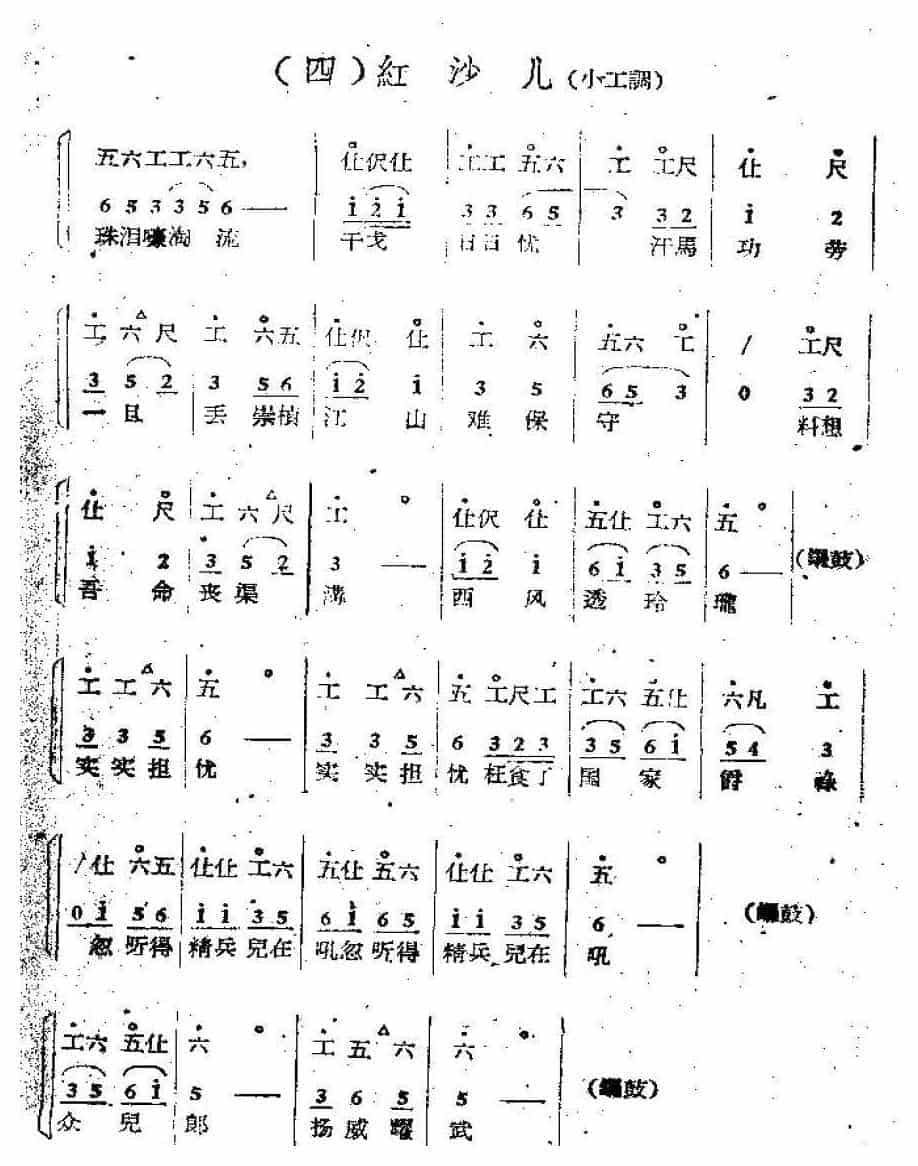 （四）紅沙儿（小工調）
五六工工六五， 仩伬仩 工工 五六 工 工尺 仩 尺
6 5 3 3 5 6 — i 2 i 3 3 6 5 3 3 2 i 2
珠泪嚎淘流 干戈 日日忧 汗馬 功 劳
工六尺 工 六五 仩伬 仩 工 六 五六 工 / 工尺
3 5 2 3 5 6 i 2 i 3 5 6 5 3 0 3 2
一旦 丢 崇楨 江 山 难 保 守 料想
仩 尺 工六尺 工 仩伬 仩 五仩 工六 五
i 2 3 5 2 3 — i 2 i 6 i 3 5 6 — （鑼鼓）
吾 命 丧渠 溝 西 风 透 玲 瓏
工工六 五 工工六 五 工尺工 工六 五仩 六凡 工
3 3 5 6 — 3 3 5 6 3 2 3 3 5 6 i 5 4 3
实实担 忧 实实担 忧 枉食了 国 家 爵 祿
/仩 六五 仩仩 工六 五仩 五六 仩仩 工六 五
0 i 5 6 i i 3 5 6 i 6 5 i i 3 5 6 — （鑼鼓）
忽 听得 精兵 兒在 吼忽 听得 精兵 兒在 吼
工六 五仩 六 工五六 六
3 5 6 i 5 — 3 6 5 5 — （鑼鼓）
众 兒 郎 扬威耀 武